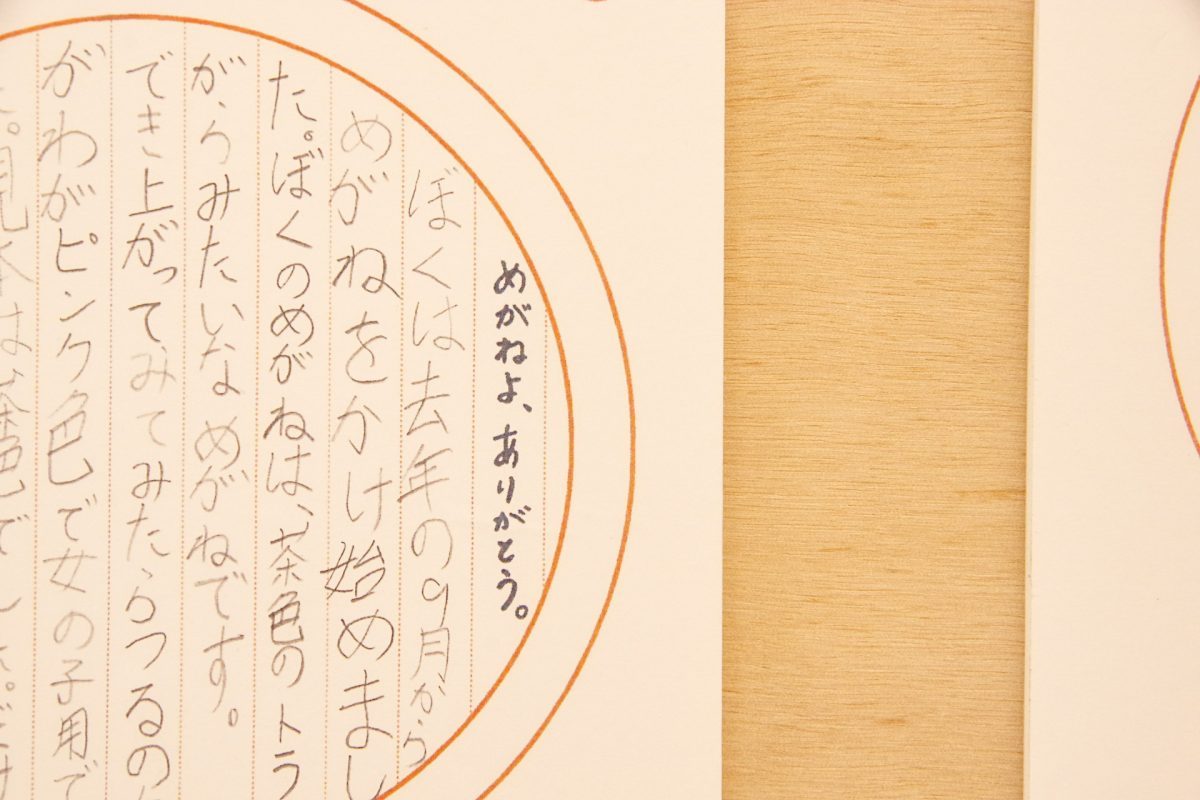 めがねよ、ありがとう。
ぼくは去年の9月から
めがねをかけ始めまし
た。ぼくのめがねは、茶色のトラ
がらみたいなめがねです。
でき上がってみてみたらつるの
がわがピンク色で女の子用で
見本は茶色でし